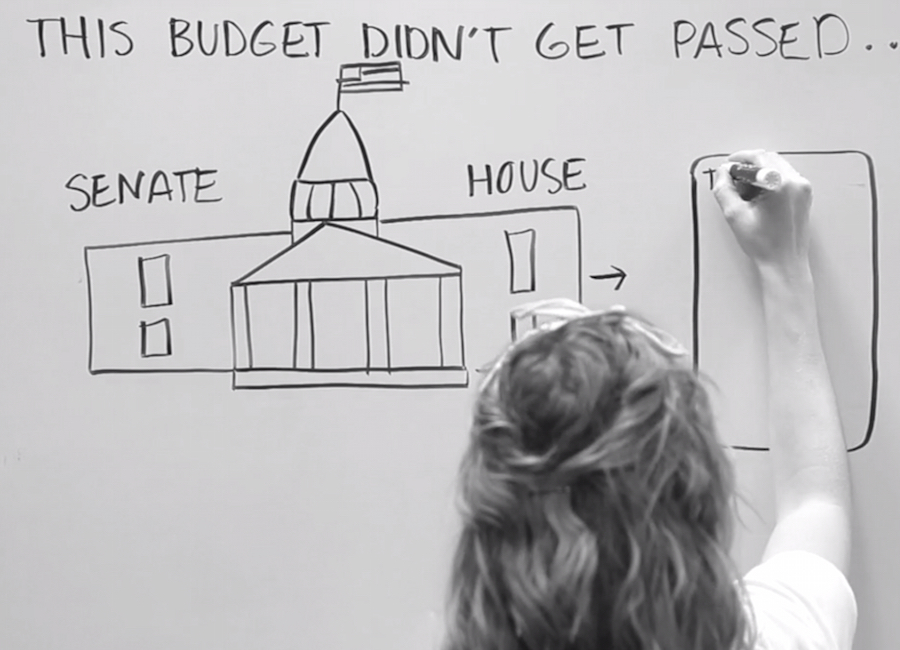 THIS BUDGET DIDN'T GET PASSED...
SENATE
HOUSE
T